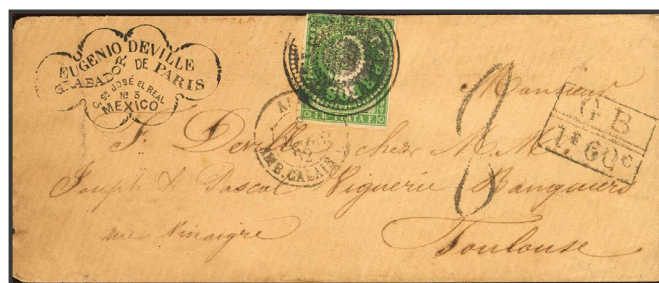 EUGENIO DEVILLE
GRABADOR DE PARIS
Cª Sn JOSÉ EL REAL
Nº 3
MEXICO
AMB. CALAIS
GB
1F 60c
8
Monsieur
F. Deville chez M M
Joseph & Pascal Viguerie Banquiers
rue Vinaigre
Toulouse